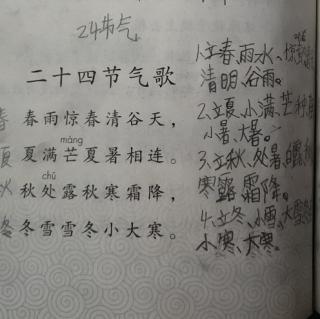 24节气
二十四节气歌
春 春雨惊春清谷天，
máng
夏 夏满芒夏暑相连。
chǔ
秋 秋处露秋寒霜降，
冬 冬雪雪冬小大寒。
1.立春、雨水、惊
清明、谷雨。
2.立夏、小满、芒种、
小暑、大暑。
3.立秋、处暑、白露、
寒露、霜降。
4.立冬、小雪、大雪、
小寒、大寒。